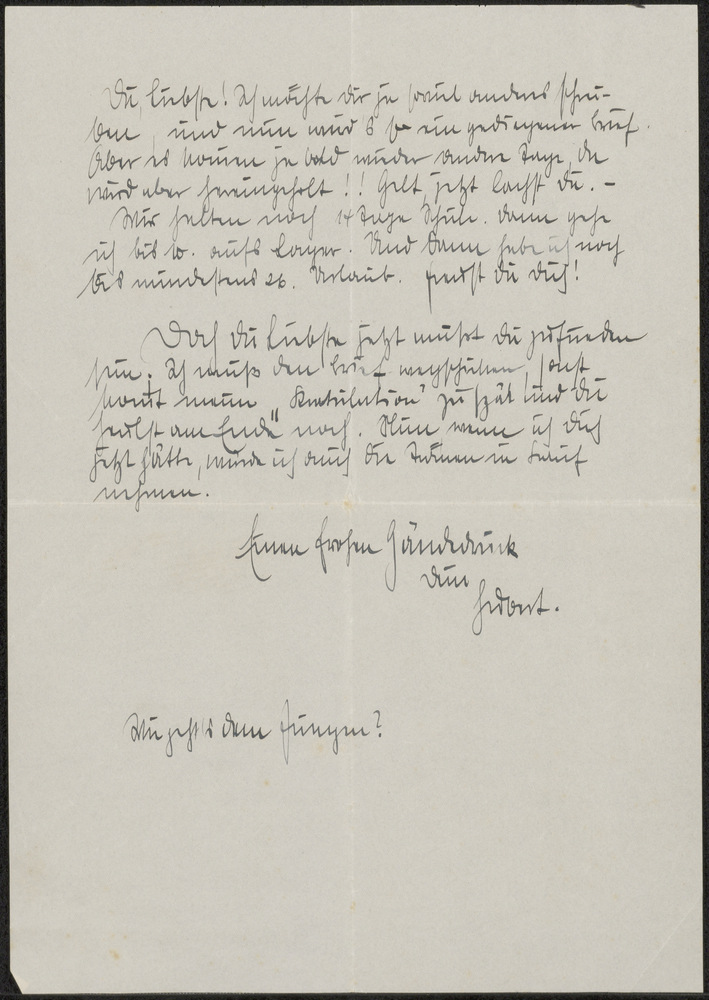 Du, Liebste! Ich möchte Dir ja soviel anders schrei-
ben, und nun wird's so ein gediegener Brief.
Aber es kommen ja bald wieder andere Tage, da
wird aber hereingeholt!! Gelt, jetzt lachst Du. –
Wir halten noch 14 Tage Schule. Dann gehe
ich bis 10. aufs Lager. Und dann habe ich noch
bis mindestens 26. Urlaub. Freust Du Dich!
Doch Du Liebste jetzt mußt Du zufrieden
sein. Ich muß den Brief wegschicken, sonst
kommt meine „Gratulation" zu spät und Du
heulst am Ende noch. Nun wenn ich Dich
jetzt hätte, würde ich auch die Tränen in Kauf
nehmen.
Einen frohen Händedruck
Dein
Herbert.
Wie geht's dem Jungen?